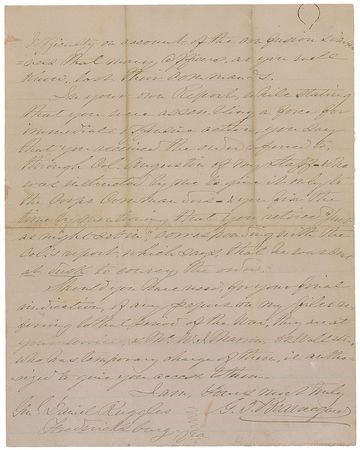 difficulty on account of the confusion &
that many officers, as you well
know, lost their commands.
In your own Report, while stating
that you were assembling a force for
immediate offensive action, you say
that you received the order referred to,
through Col. Augustin of my Staff - who
was instructed by me to give it only to
the Corps Commanders - & you fix the
time by mentioning that you received it "just
as night set in", corresponding with the
Col's report, which says, that he was sent
at dusk to convey the order.
Should you have need, for your final
vindication, of any papers in my files re-
ferring to that period of the War, they are at
your service, & Mr. W. 
who has temporary charge of them, is autho-
rized to give you access to them.
I am, Yours most truly
G. T. Beauregard
Gen. Daniel Ruggles
Fredericksburg